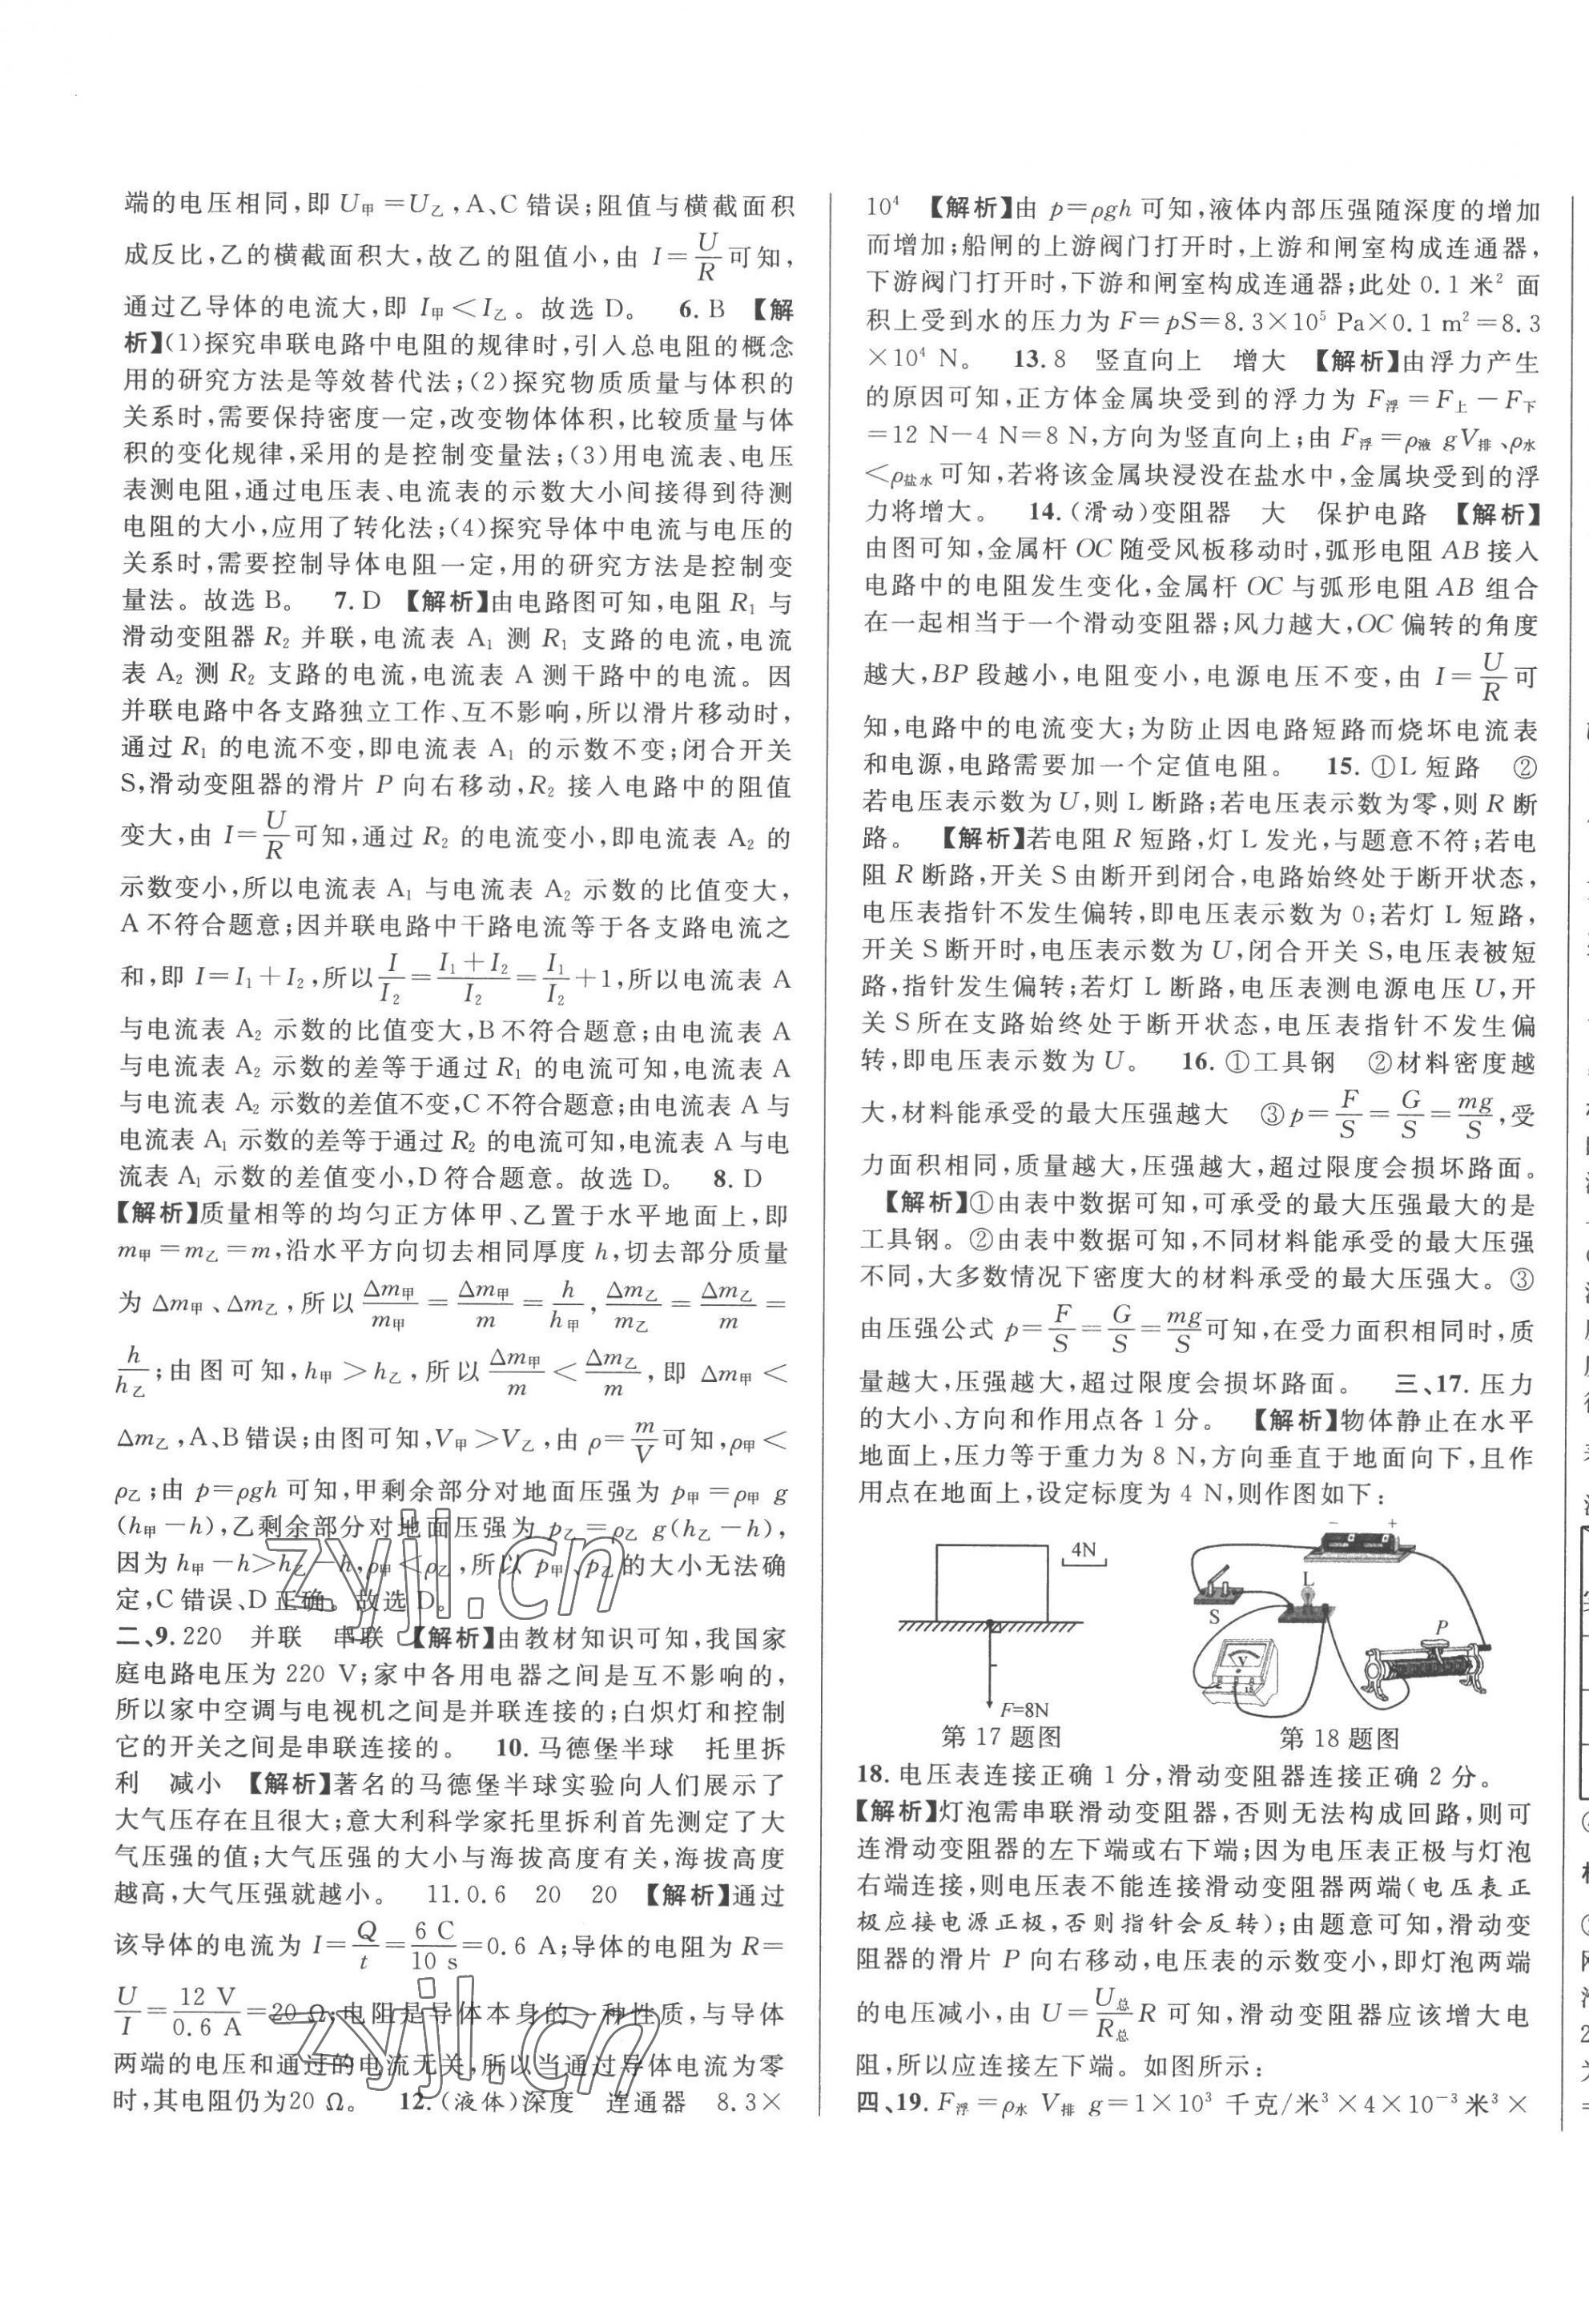 端的电压相同,即 U甲=U乙,A、C 错误;阻值与横截面积
成反比,乙的横截面积大,故乙的阻值小,由 I=U/R可知,
通过乙导体的电流大,即 I甲<I乙。故选 D。 6.B 【解
析】(1)探究串联电路中电阻的规律时,引入总电阻的概念
用的研究方法是等效替代法;(2)探究物质质量与体积的
关系时,需要保持密度一定,改变物体体积,比较质量与体
积的变化规律,采用的是控制变量法;(3)用电流表、电压
表测电阻,通过电压表、电流表的示数大小间接得到待测
电阻的大小,应用了转化法;(4)探究导体中电流与电压的
关系时,需要控制导体电阻一定,用的研究方法是控制变
量法。故选 B。 7.D 【解析】由电路图可知,电阻 R₁ 与
滑动变阻器 R₂ 并联,电流表 A₁ 测 R₁ 支路的电流,电流
表 A₂ 测 R₂ 支路的电流,电流表 A 测干路中的电流。因
并联电路中各支路独立工作、互不影响,所以滑片移动时,
通过 R₁ 的电流不变,即电流表 A₁ 的示数不变;闭合开关
S,滑动变阻器的滑片 P 向右移动,R₂ 接入电路中的阻值
变大,由 I=U/R可知,通过 R₂ 的电流变小,即电流表 A₂ 的
示数变小,所以电流表 A₁ 与电流表 A₂ 示数的比值变大,
A 不符合题意;因并联电路中干路电流等于各支路电流之
和,即 I=I₁+I₂,所以I/I₂=(I₁+I₂)/I₂=I₁/I₂+1,所以电流表 A
与电流表 A₂ 示数的比值变大,B不符合题意;由电流表 A
与电流表 A₂ 示数的差等于通过 R₁ 的电流可知,电流表 A
与电流表 A₂ 示数的差值不变,C不符合题意;由电流表 A与
电流表 A₁ 示数的差等于通过 R₂ 的电流可知,电流表 A 与电
流表 A₁ 示数的差值变小,D符合题意。故选 D。 8.D
【解析】质量相等的均匀正方体甲、乙置于水平地面上,即
m甲=m乙=m,沿水平方向切去相同厚度 h,切去部分质量
为 Δm甲、Δm乙,所以 Δm甲/m甲=Δm甲/m=h/h甲,Δm乙/m乙=Δm乙/m=
h/h乙;由图可知,h甲>h乙,所以 Δm甲/m<Δm乙/m,即 Δm甲<
Δm乙,A、B错误;由图可知,V甲>V乙,由 ρ=m/V可知,ρ甲<
ρ乙;由 p=ρgh 可知,甲剩余部分对地面压强为 p甲=ρ甲 g
(h甲-h),乙剩余部分对地面压强为 p乙=ρ乙 g(h乙-h),
因为 h甲-h>h乙-h,ρ甲<ρ乙,所以 p甲、p乙的大小无法确
定,C 错误、D 正确。故选 D。
二、9.220 并联 串联 【解析】由教材知识可知,我国家
庭电路电压为 220 V;家中各用电器之间是互不影响的,
所以家中空调与电视机之间是并联连接的;白炽灯和控制
它的开关之间是串联连接的。 10.马德堡半球 托里拆
利 减小 【解析】著名的马德堡半球实验向人们展示了
大气压存在且很大;意大利科学家托里拆利首先测定了大
气压强的值;大气压强的大小与海拔高度有关,海拔高度
越高,大气压强就越小。 11.0.6 20 20 【解析】通过
该导体的电流为 I=Q/t=6 C/10 s=0.6 A;导体的电阻为 R=
U/I=12 V/0.6 A=20 Ω;电阻是导体本身的一种性质,与导体
两端的电压和通过的电流无关,所以当通过导体电流为零
时,其电阻仍为20 Ω。 12.(液体)深度 连通器 8.3×
10⁴ 【解析】由 p=ρgh 可知,液体内部压强随深度的增加
而增加;船闸的上游阀门打开时,上游和闸室构成连通器,
下游阀门打开时,下游和闸室构成连通器;此处 0.1 米² 面
积上受到水的压力为 F=pS=8.3×10⁵ Pa×0.1 m²=8.3
×10⁴ N。 13.8 竖直向上 增大 【解析】由浮力产生
的原因可知,正方体金属块受到的浮力为 F浮=F上-F下
=12 N-4 N=8 N,方向为竖直向上;由 F浮=ρ液 gV排、ρ水
<ρ盐水可知,若将该金属块浸没在盐水中,金属块受到的浮
力将增大。 14.(滑动)变阻器 大 保护电路 【解析】
由图可知,金属杆 OC 随受风板移动时,弧形电阻 AB 接入
电路中的电阻发生变化,金属杆 OC 与弧形电阻 AB 组合
在一起相当于一个滑动变阻器;风力越大,OC 偏转的角度
越大,BP 段越小,电阻变小,电源电压不变,由 I=U/R可
知,电路中的电流变大;为防止因电路短路而烧坏电流表
和电源,电路需要加一个定值电阻。 15.①L 短路 ②
若电压表示数为 U,则 L 断路;若电压表示数为零,则 R 断
路。 【解析】若电阻 R 短路,灯 L 发光,与题意不符;若电
阻 R 断路,开关 S 由断开到闭合,电路始终处于断开状态,
电压表指针不发生偏转,即电压表示数为 0;若灯 L 短路,
开关 S 断开时,电压表示数为 U,闭合开关 S,电压表被短
路,指针发生偏转;若灯 L 断路,电压表测电源电压 U,开
关 S 所在支路始终处于断开状态,电压表指针不发生偏
转,即电压表示数为 U。 16.①工具钢 ②材料密度越
大,材料能承受的最大压强越大 ③p=F/S=G/S=mg/S,受
力面积相同,质量越大,压强越大,超过限度会损坏路面。
【解析】①由表中数据可知,可承受的最大压强最大的是
工具钢。②由表中数据可知,不同材料能承受的最大压强
不同,大多数情况下密度大的材料承受的最大压强大。③
由压强公式 p=F/S=G/S=mg/S可知,在受力面积相同时,质
量越大,压强越大,超过限度会损坏路面。 三、17.压力
的大小、方向和作用点各 1 分。 【解析】物体静止在水平
地面上,压力等于重力为 8 N,方向垂直于地面向下,且作
用点在地面上,设定标度为 4 N,则作图如下:
4N
F=8N
第 17 题图
- +
L
S
P
V
第 18 题图
18.电压表连接正确 1 分,滑动变阻器连接正确 2 分。
【解析】灯泡需串联滑动变阻器,否则无法构成回路,则可
连滑动变阻器的左下端或右下端;因为电压表正极与灯泡
右端连接,则电压表不能连接滑动变阻器两端(电压表正
极应接电源正极,否则指针会反转);由题意可知,滑动变
阻器的滑片 P 向右移动,电压表的示数变小,即灯泡两端
的电压减小,由 U=U总/R总R 可知,滑动变阻器应该增大电
阻,所以应连接左下端。如图所示:
四、19.F浮=ρ水 V排 g=1×10³ 千克/米³×4×10⁻³米³×
zyjl.cn
zyjl.cn